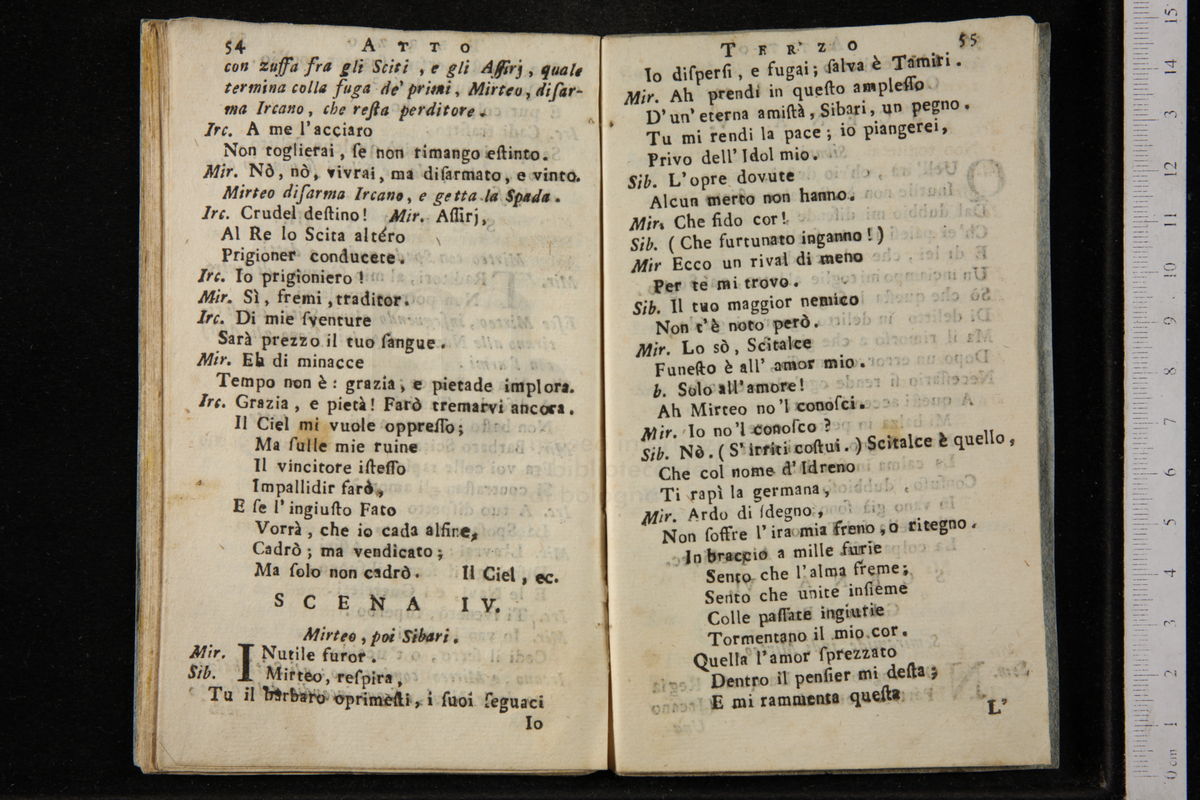 54 ATTO
con zuffa fra gli Sciti , e gli Assirj , quale
termina colla fuga de' primi, Mirteo, disar-
ma Ircano, che resta perditore.
Irc. A me l'acciaro
Non toglierai, se non rimango estinto.
Mir. Nò, nò, vivrai, ma disarmato, e vinto.
Mirteo disarma Ircano, e getta la Spada.
Irc. Crudel destino! Mir. Assirj,
Al Re lo Scita altéro
Prigioner conducete.
Irc. Io prigioniero!
Mir. Sì, fremi, traditor.
Irc. Di mie sventure
Sarà prezzo il tuo sangue.
Mir. Eh di minacce
Tempo non è: grazia, e pietade implora.
Irc. Grazia, e pietà! Farò tremarvi ancora.
Il Ciel mi vuole oppresso;
Ma sulle mie ruine
Il vincitore istesso
Impallidir farò,
E se l'ingiusto Fato
Vorrà, che io cada alfine,
Cadrò; ma vendicato;
Ma solo non cadrò. Il Ciel, ec.
SCENA IV.
Mirteo, poi Sibari.
Mir. INutile furor.
Sib. Mirteo, respira,
Tu il barbaro oprimesti, i suoi seguaci
Io
TERZO 55
Io dispersi, e fugai; salva è Tamiri.
Mir. Ah prendi in questo amplesso
D'un' eterna amistà, Sibari, un pegno.
Tu mi rendi la pace; io piangerei,
Privo dell' Idol mio.
Sib. L'opre dovute
Alcun merto non hanno.
Mir. Che fido cor!
Sib. (Che furtunato inganno!)
Mir Ecco un rival di meno
Per te mi trovo.
Sib. Il tuo maggior nemico
Non t'è noto però.
Mir. Lo sò, Scitalce
Funesto è all' amor mio.
b. Solo all'amore!
Ah Mirteo no'l conosci.
Mir. Io no'l conosco?
Sib. Nò. (S'irriti costui.) Scitalce è quello,
Che col nome d'Idreno
Ti rapì la germana,
Mir. Ardo di sdegno,
Non soffre l'ira mia freno, o ritegno.
In braccio a mille furie
Sento che l'alma freme;
Sento che unite insieme
Colle passate ingiurie
Tormentano il mio cor.
Quella l'amor sprezzato
Dentro il pensier mi desta;
E mi rammenta questa
L'